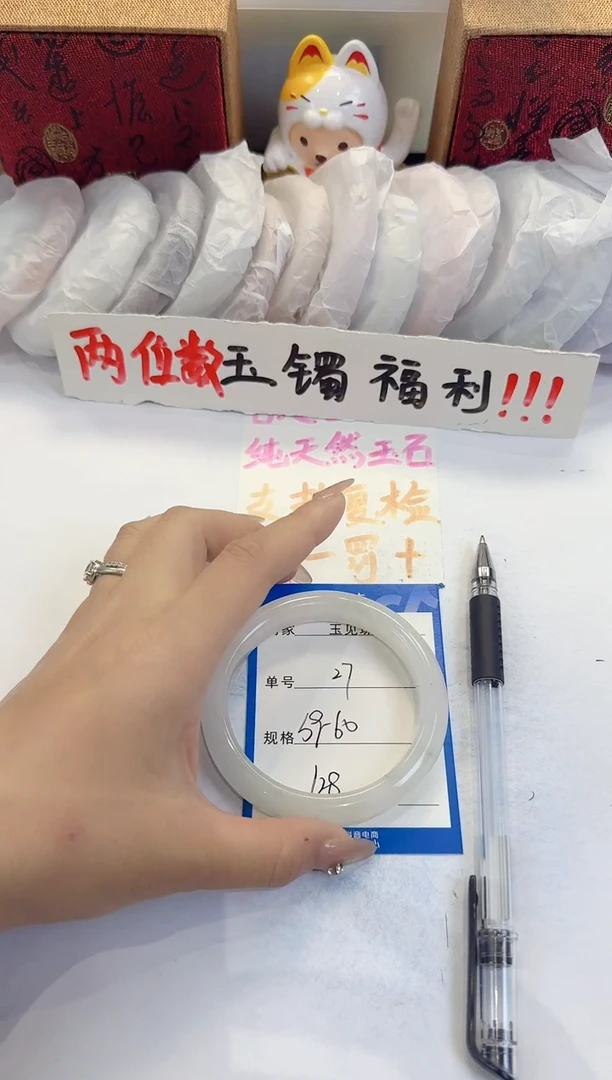 两位数玉镯福利!!!
纯天然玉石
支持复检
一罚十
单号 27
规格 59-60
128
抖音电商